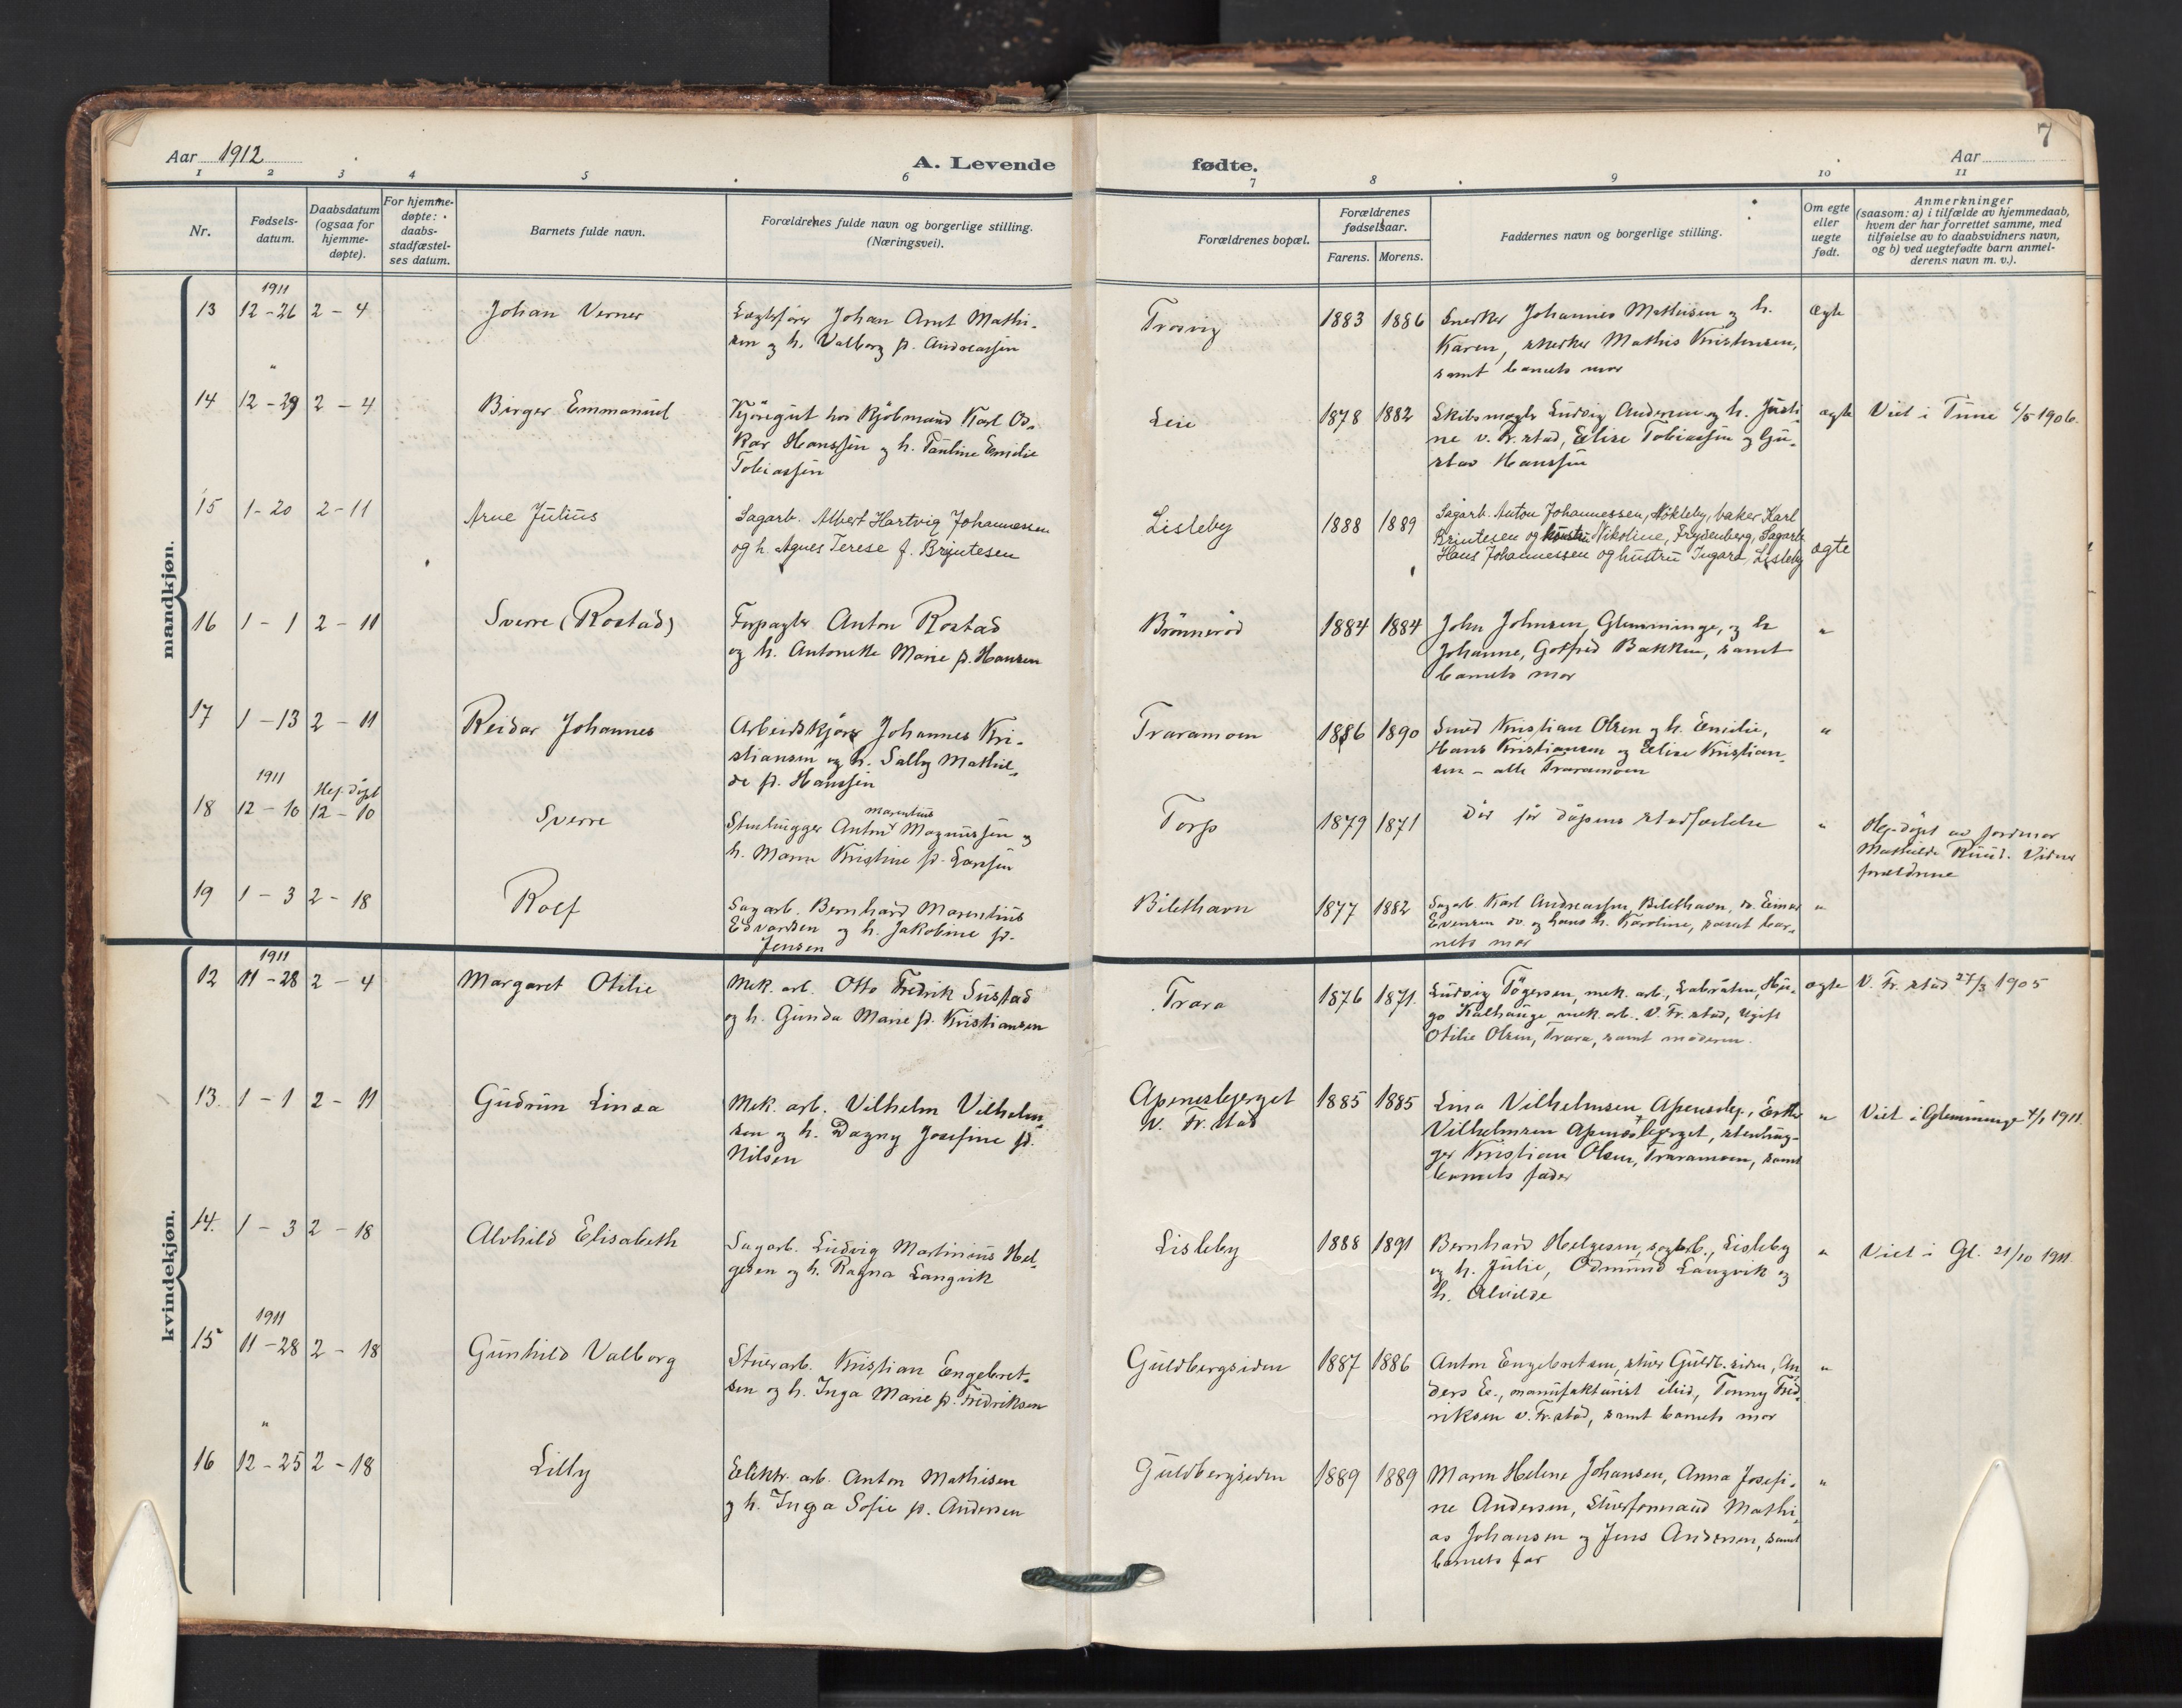 Aar 1912
A. Levende fødte.
7
Aar
1 2 3 4 5 6 7 8 9 10 11
Nr.
Fødsels-
datum.
Daabsdatum
(ogsaa for
hjemme-
døpte).
For hjemme-
døpte:
daabs-
stadfæstel-
ses datum.
Barnets fulde navn.
Forældrenes fulde navn og borgerlige stilling.
(Næringsvei).
Forældrenes bopæl.
Forældrenes
fødselsaar.
Farens. Morens.
Faddernes navn og borgerlige stilling.
Om egte
eller
uegte
født.
Anmerkninger
(saasom: a) i tilfælde av hjemmedaab,
hvem der har forrettet samme, med
tilføielse av to daabsvidners navn,
og b) ved uegtefødte barn anmel-
derens navn m. v.).
mandkjøn.
1911
13 12-26 2-4 Johan Verner
Johan Arnt Mathi-
sen og h. Valborg f. Andreassen
Trosvig 1883 1886
Snerker Johannes Mathisen og h.
Karen, snerker Mathis Kristensen,
samt barnets mor
ægte
"
14 12-29 2-4 Birger Emmanuel
Kjøregut hos kjøbmand Karl Os-
kar Hanssen og h. Pauline Emilie
Tobiassen
Leie 1878 1882
Skibsmægler Ludvig Andersen og h. Justi-
ne v. Fr.stad, Elise Tobiassen og Gu-
stav Hanssen
ægte
Viet i Tune 6/5 1906.
15 1-20 2-11 Arne Julius
Sagarb. Albert Hartvig Johannessen
og h. Agnes Terese f. Brijntesen
Lisleby 1888 1889
Sagarb. Anton Johannessen, Nøkleby, baker Karl
Brijntesen og hustru Nikoline, Frydenberg, Sagarb.
Hans Johannessen og hustru Ingara, Lisleby
ægte
16 1-1 2-11 Sverre (Rostad)
Forpagter Anton Rostad
og h. Antonette Marie f. Hansen
Brønnerød 1884 1884
John Johnsen, Glemminge, og h
Johanne, Gotfred Bakken, samt
barnets mor
"
17 1-13 2-11 Reidar Johannes
Arbeidskjører Johannes Kri-
stiansen og h. Sally Mathil-
de f. Hanssen
Traramoen 1886 1890
Smed Kristian Olsen og h. Emilie,
Hans Kristiansen og Elise Kristian-
sen - alle Traramoen
"
1911 Hj.døpt
18 12-10 12-10 Sverre
Marentius
Stenhugger Anton Magnussen og
h. Maren Kristine f. Larssen
Torp 1879 1871
Død før dåpens stadfæstelse
"
Hj.døpt av jordmor
Mathilde Ruud. Vidner
forældrene
19 1-3 2-18 Rolf
Sagarb. Bernhard Marentius
Edvardsen og h. Jakobine f.
Jensen
Bilethavn 1877 1882
Sagarb. Karl Andreassen, Bilethavn, s. Einar
Evensen sv. og hans h. Karoline, samt bar-
nets mor
"
kvindekjøn.
1911
12 11-28 2-4 Margaret Otilie
Mek. arb. Otto Fredrik Sustad
og h. Gunda Marie f. Kristiansen
Trara 1876 1871.
Ludvig Tøgersen, mek. arb., Labråten, Hu-
go Kalhauge mek. arb. v. Fr.stad, Ugift
Otilie Olsen, Trara, samt moderen.
ægte
V. Fr.stad 27/3 1905
13. 1-1 2-11 Gudrun Linea
Mek. arb. Vilhelm Vilhelm-
sen og h. Dagny Josefine f.
Nilsen
Apenesbjerget
v. Fr.stad
1885 1885
Lina Vilhelmsen Apenesbj., Ester
Vilhelmsen Apenesbjerget, stenhug-
ger Kristian Olsen, Traramoen, samt
barnets fader
"
Viet i Glemminge 4/1 1911.
14. 1-3 2-18 Alvhild Elisabeth
Sagarb. Ludvig Martinius Hel-
gesen og h. Ragna Langvik
Lisleby 1888 1891
Bernhard Helgesen, sagarb., Lisleby
og h. Julie, Odmund Langvik og
h. Alvilde
"
Viet i Gl. 21/10 1911.
1911
15 11-28 2-18 Gunhild Valborg
Stuerarb. Kristian Engebret-
sen og h. Inga Marie f. Fredriksen
Guldbergsiden 1887 1886
Anton Engebretsen, stuer Guldb.siden, An-
ders E., manufakturist ibid, Tonny Fred-
riksen v. Fr.stad, samt barnets mor
"
"
16 12-25 2-18 Lilly
Elektr. arb. Anton Mathisen
og h. Inga Sofie f. Andersen
Guldbergsiden 1889 1889
Maren Helene Johansen, Anna Josefi-
ne Andersen, Stuerformand Mathi-
as Johansen og Jens Andersen, samt
barnets far
"